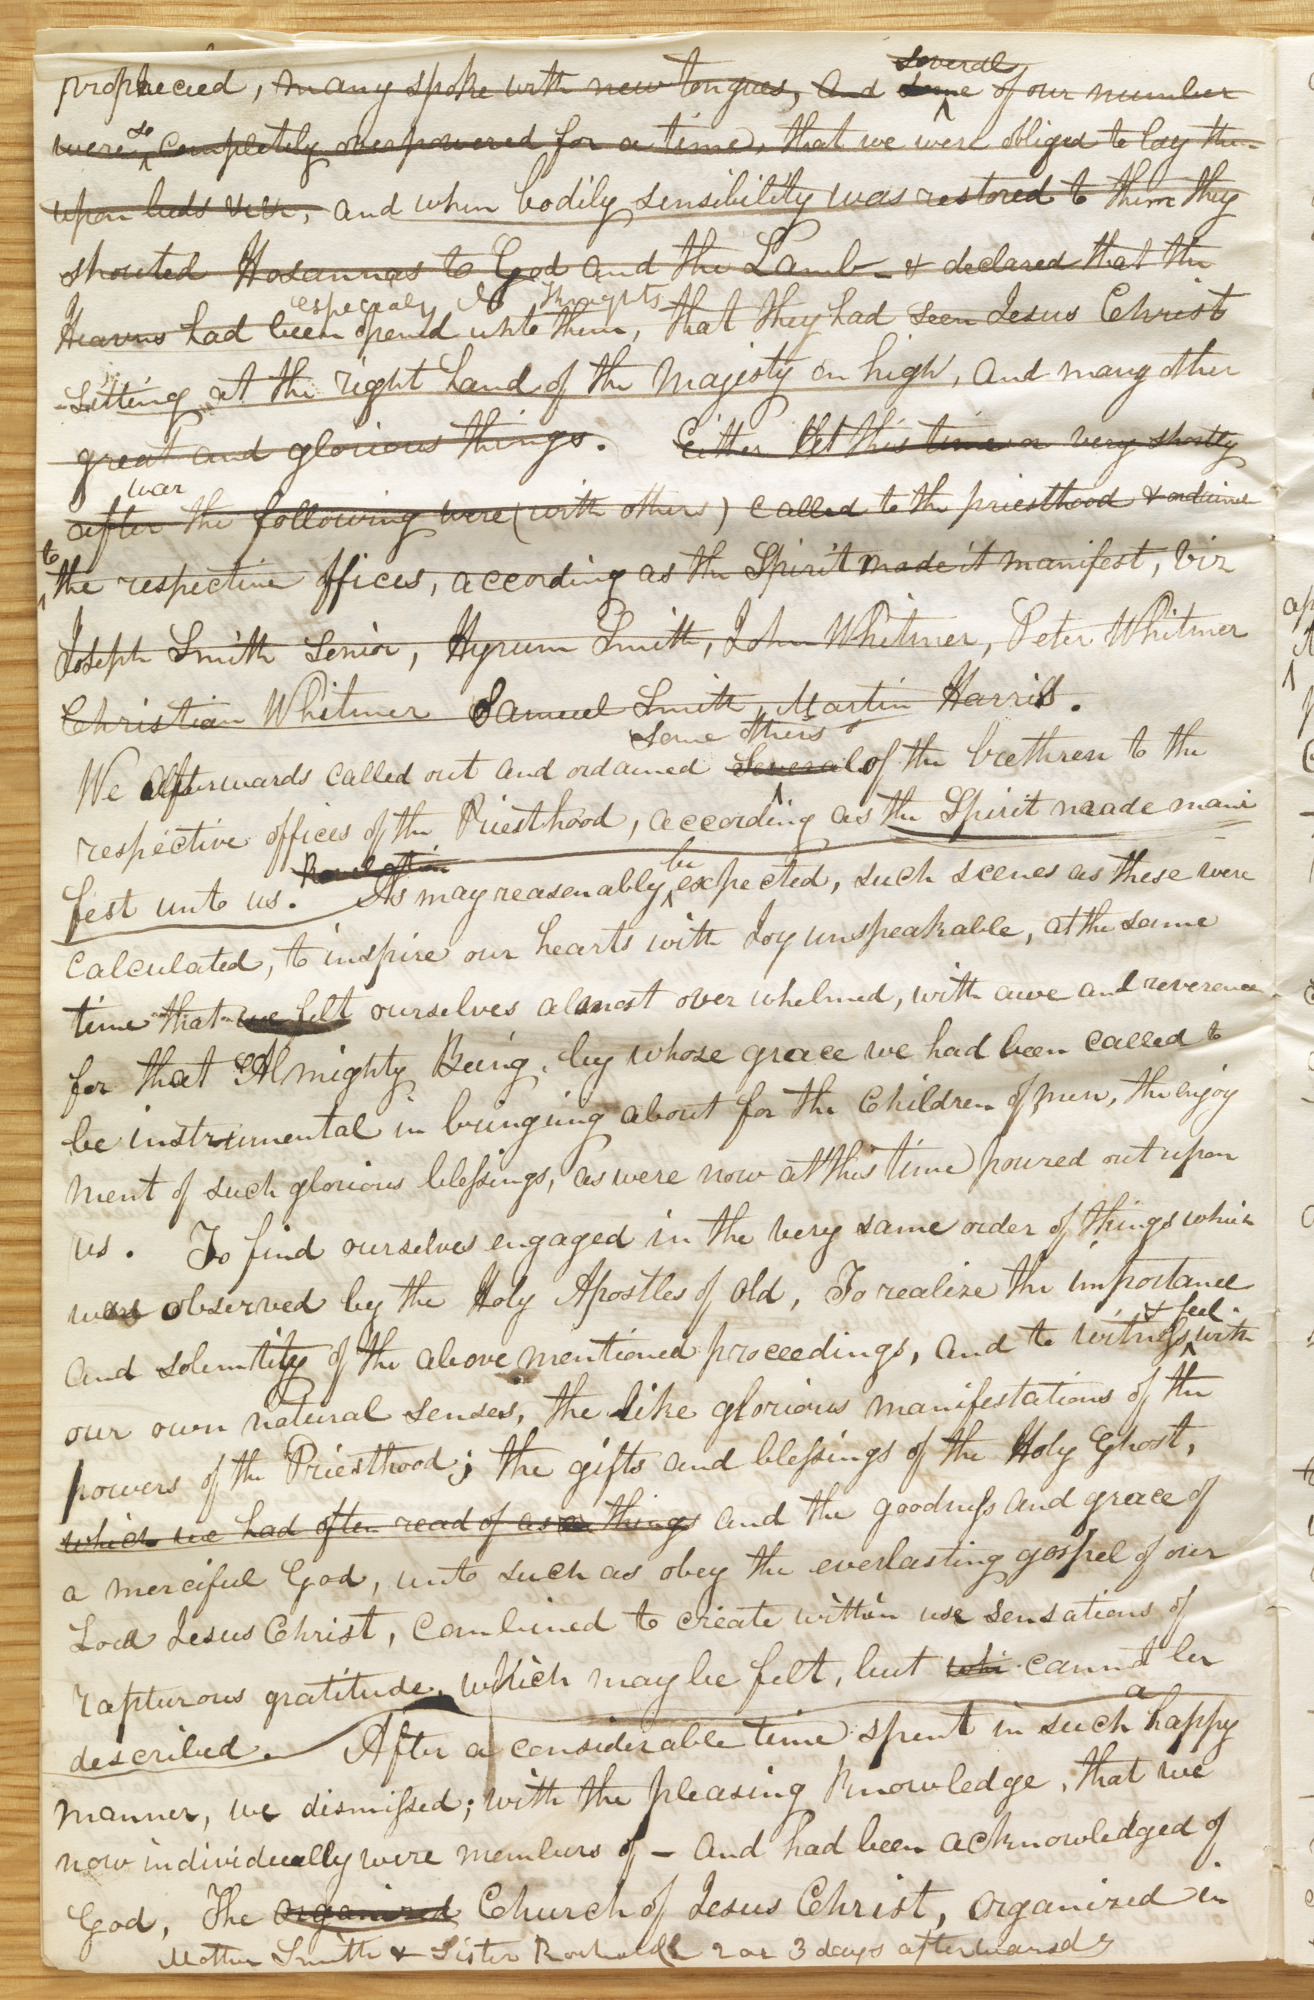 prophecied, many spoke with new tongues, and some several of our number
were so completely overpowered for a time, that we were obliged to lay them
upon beds &c &c, and when bodily sensibility was restored to them they
shouted Hosannas to God and the Lamb & declared that the
especialy N thoughts
Heavens had been opened unto them, that they had seen Jesus Christ
sitting at the right hand of the Majesty on high, and many other
great and glorious things. Either At this time or very shortly
war
after the following were (with others) called to the priesthood & ordained
to the respective offices, according as the Spirit made it manifest, viz
Joseph Smith Senior, Hyrum Smith, John Whitmer, Peter Whitmer
Christian Whitmer Samuel Smith, Martin Harris.
some others
We afterwards called out and ordained several of the brethren to the
respective offices of the Priesthood, according as the Spirit made mani
Revelation
fest unto us. As may reasonably be expected, such scenes as these were
calculated, to inspire our hearts with Joy unspeakable, at the same
time that we felt ourselves almost over whelmed, with awe and reverence
for that Almighty Being, by whose grace we had been called to
be instrumental in bringing about for the Children of men, the enjoy
ment of such glorious blessings, as were now at this time poured out upon
us. To find ourselves engaged in the very same order of things which
were observed by the Holy Apostles of old, To realize the importance
and solemnity of the above mentioned proceedings, and to witness & feel with
our own natural senses, the like glorious manifestations of the
powers of the Priesthood; the gifts and blessings of the Holy Ghost,
which we had often read of as things and the goodness and grace of
a merciful God, unto such as obey the everlasting gospel of our
Lord Jesus Christ, combined to create within us sensations of
rapturous gratitude, which may be felt, but whi cannot be
described. After a considerable time spent in such a happy
manner, we dismissed; with the pleasing knowledge, that we
now individually were members of — and had been acknowledged of
God, The organized Church of Jesus Christ, organized in
Mother Smith & Sister Rockwell 2 or 3 days afterwards